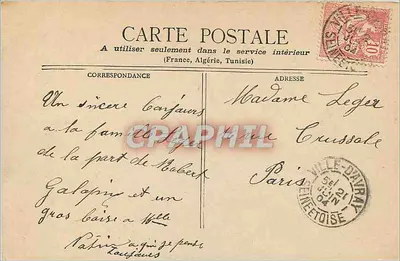 CARTE POSTALE
A utiliser seulement dans le service intérieur
(France, Algérie, Tunisie)
CORRESPONDANCE
ADRESSE
Un sincère
a la famille
de la part de Robert
Galopin et un
gros baise a Melle
qui je pense
Toujours
Madame Leger
rue Crussole
Paris
CPAPHIL
VILLE-D'AVRAY
21
JUIN
04
SEINE ET OISE
10